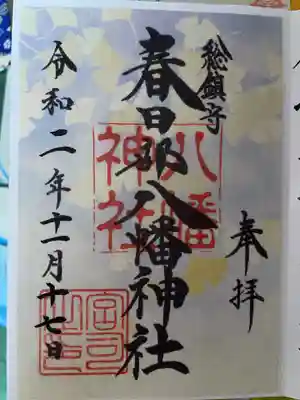 総鎮守
奉拝
春日部八幡神社
八幡
神社
令和二年十一月十七日